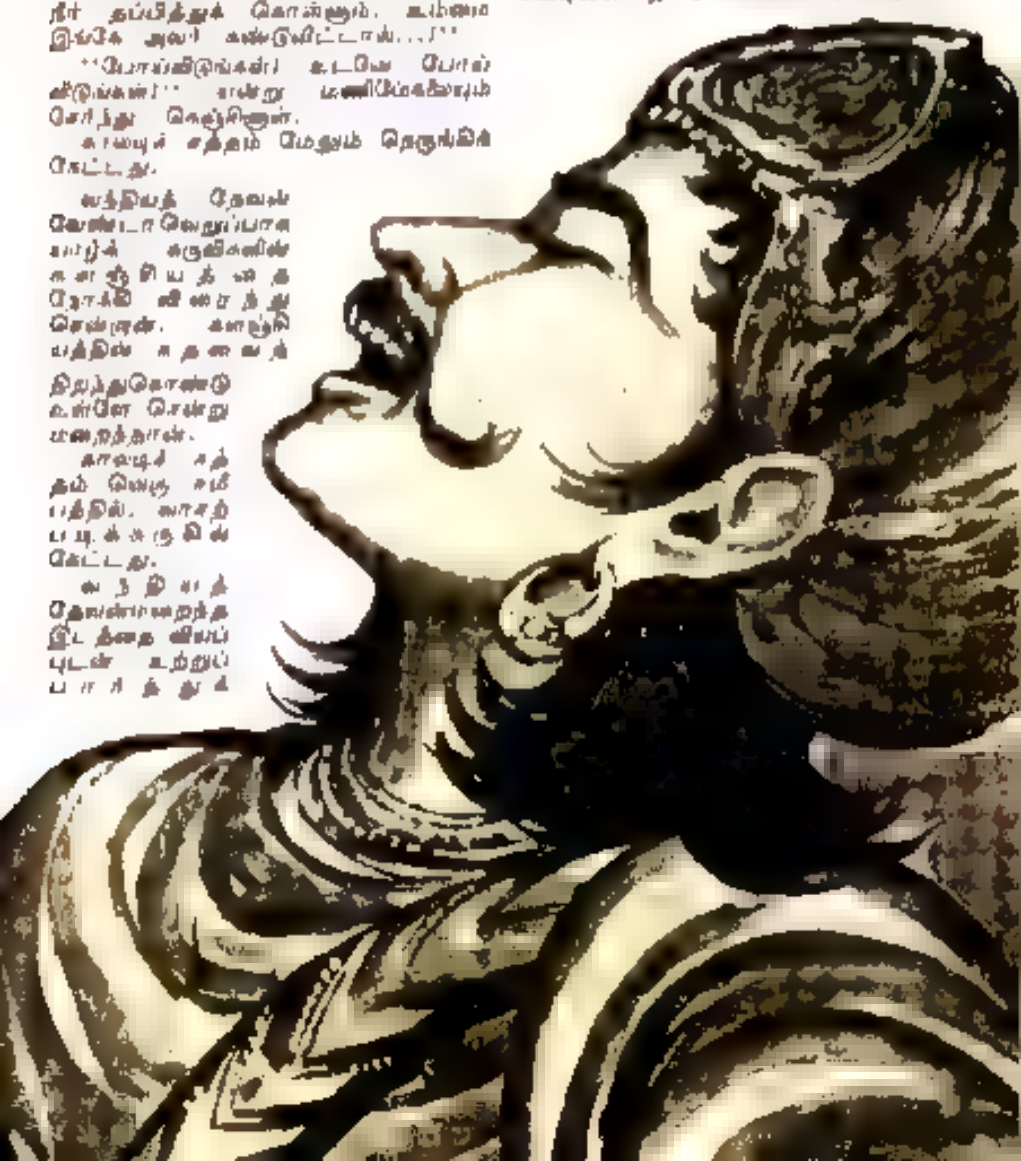 நீர் தப்பித்துக் கொள்ளும். உம்மை
இங்கே அவர் கண்டுவிட்டால்...!''
''போய்விடுங்கள்! உடனே போய்
விடுங்கள்!'' என்று மணிமேகலையும்
சேர்ந்து கெஞ்சினாள்.
காலடிச் சத்தம் மேலும் நெருங்கிக்
கேட்டது.
வந்தியத் தேவன்
வேண்டா வெறுப்பாக
யாழ்க் கருவிகளின்
களஞ்சியத்தை
நோக்கி விரைந்து
சென்றான். களஞ்சி
யத்தின் கதவைத்
திறந்துகொண்டு
உள்ளே சென்று
மறைந்தான்.
காலடிச் சத்
தம் வெகு சமீ
பத்தில், வாசற்
படிக்கருகில்
கேட்டது.
வந்தியத்
தேவன்மறைந்த
இடத்தை வியப்
புடன் உற்றுப்
பார்த்துக்